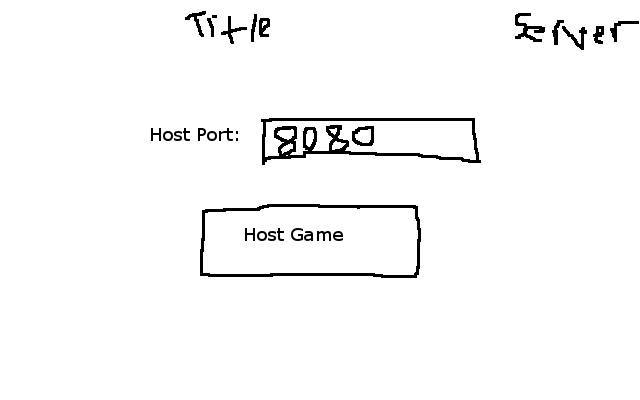 Title Server
Host Port: 8080
Host Game